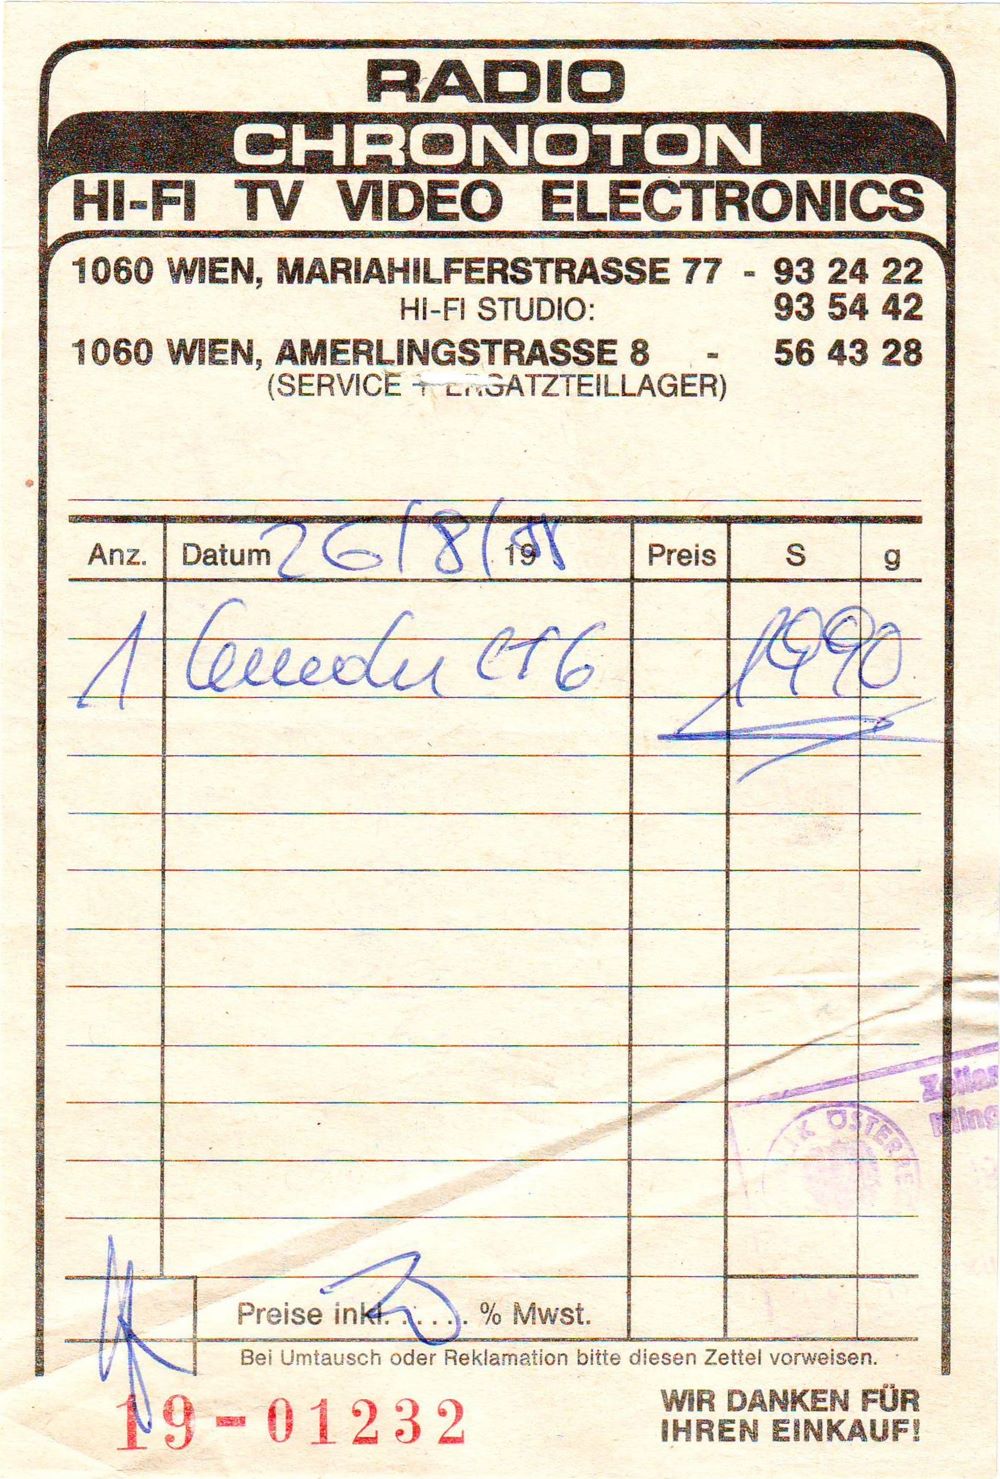 RADIO
CHRONOTON
HI-FI TV VIDEO ELECTRONICS
1060 WIEN, MARIAHILFERSTRASSE 77 - 93 24 22
HI-FI STUDIO: 93 54 42
1060 WIEN, AMERLINGSTRASSE 8 - 56 43 28
(SERVICE + ERSATZTEILLAGER)
Anz. Datum 26/8/ 19 Preis S g
1 1990
Preise inkl. ...... % Mwst.
Bei Umtausch oder Reklamation bitte diesen Zettel vorweisen.
19-01232
WIR DANKEN FÜR
IHREN EINKAUF!